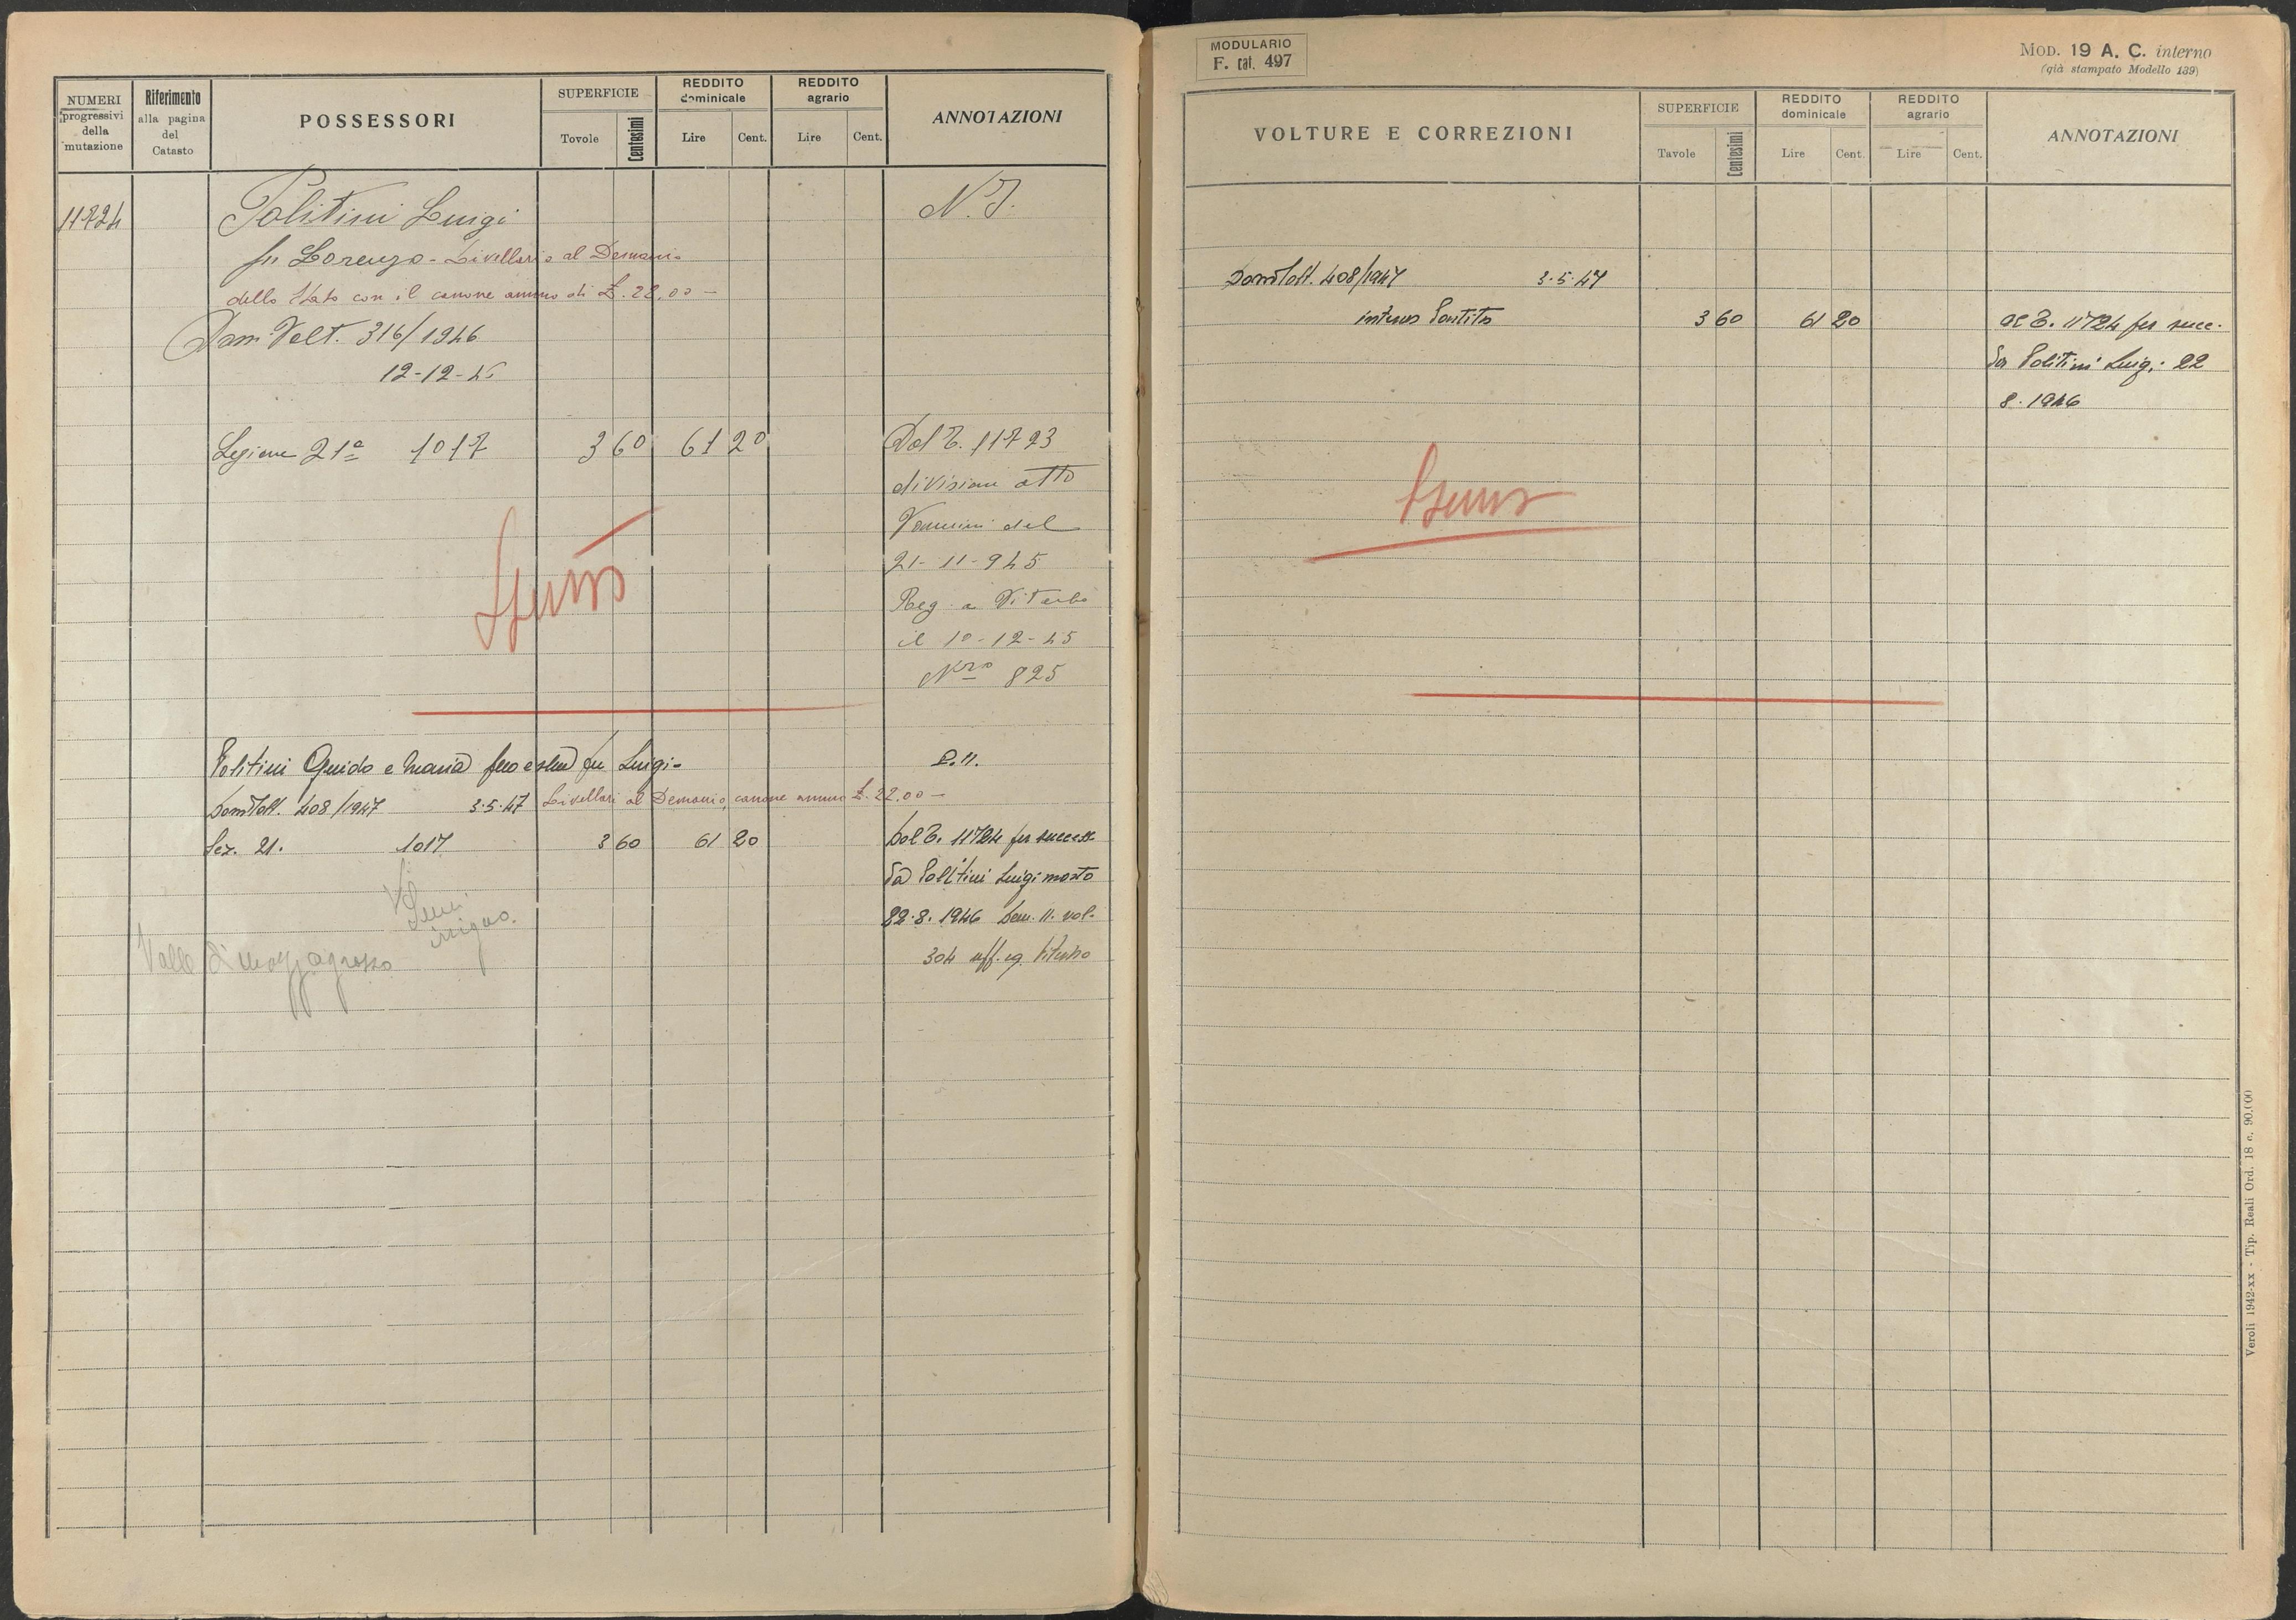 NUMERI
progressivi
della
mutazione
Riferimento
alla pagina
del
Catasto
POSSESSORI
SUPERFICIE
Tovole
Centesimi
REDDITO
dominicale
Lire
Cent.
REDDITO
agrario
Lire
Cent.
ANNOTAZIONI
11724
Politini Luigi
N. I.
fu Lorenzo - Livellario al Demanio
dello Stato con il canone annuo di £. 22,00 -
Dom. Volt. 316/1946
12-12-46
Sezione 21ª 1017 3 60 61 20 Dal P. 11723
division atto
Vannini del
21-11-945
Reg. a Viterbo
il 10-12-45
Nro 825
Politini Guido e Maria fu Luigi -
P. II.
Dom Volt. 408/1947 3.5.47 Livellari al Demanio, canone annuo £. 22,00 -
Sez. 21. 1017 3 60 61 20 Dal P. 11724 per success
da Politini Luigi morto
22.8.1946 Den. 11. vol.
304 uff. rg. Viterbo
Valle
MODULARIO
F. cat. 497
MOD. 19 A. C. interno
(già stampato Modello 139)
VOLTURE E CORREZIONI
SUPERFICIE
Tavole
Centesimi
REDDITO
dominicale
Lire
Cent.
REDDITO
agrario
Lire
Cent.
ANNOTAZIONI
Dom Volt. 408/1947 3.5.47
intera Partita 3 60 61 20 al P. 11724 per succ.
da Politini Luigi 22
8.1946
Veroli 1942-XX - Tip. Reali Ord. 18 c. 90.000